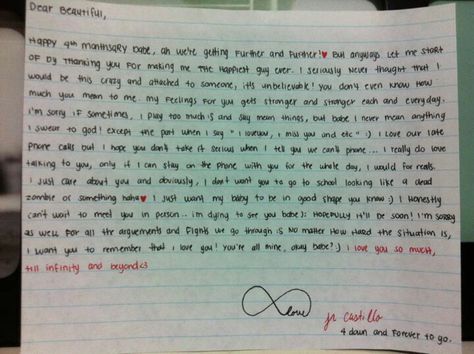 Dear Beautiful,
Happy 4th monthsary babe, ah we're getting further and further!♥ But anyways let me start
of by thanking you for making me the happiest guy ever. I seriously never thought that I
would be this crazy and attached to someone, it's unbelievable! you don't even know how
much you mean to me. my feelings for you gets stronger and stronger each and everyday.
i'm sorry if sometimes, i play too much is and say mean things, but babe I never mean anything
I swear to god! except the part when I say "iloveyou, i miss you and etc" :) I love our late
phone calls but i hope you don't take it serious when i tell you we can't phone... i really do love
talking to you, only if i can stay on the phone with you for the whole day, i would for reals.
I just care about you and obviously, I don't want you to go to school looking like a dead
zombie or something haha♥ I just want my baby to be in good shape you know :) I honestly
can't wait to meet you in person... i'm dying to see you babe): Hopefully it'll be soon! I'm sorry
as well for all the arguements and fights we go through is no matter how hard the situation is,
I want you to remember that i love you! you're all mine, okay babe? :) i love you so much,
till infinity and beyond<3
love
jr castillo
4 down and forever to go.